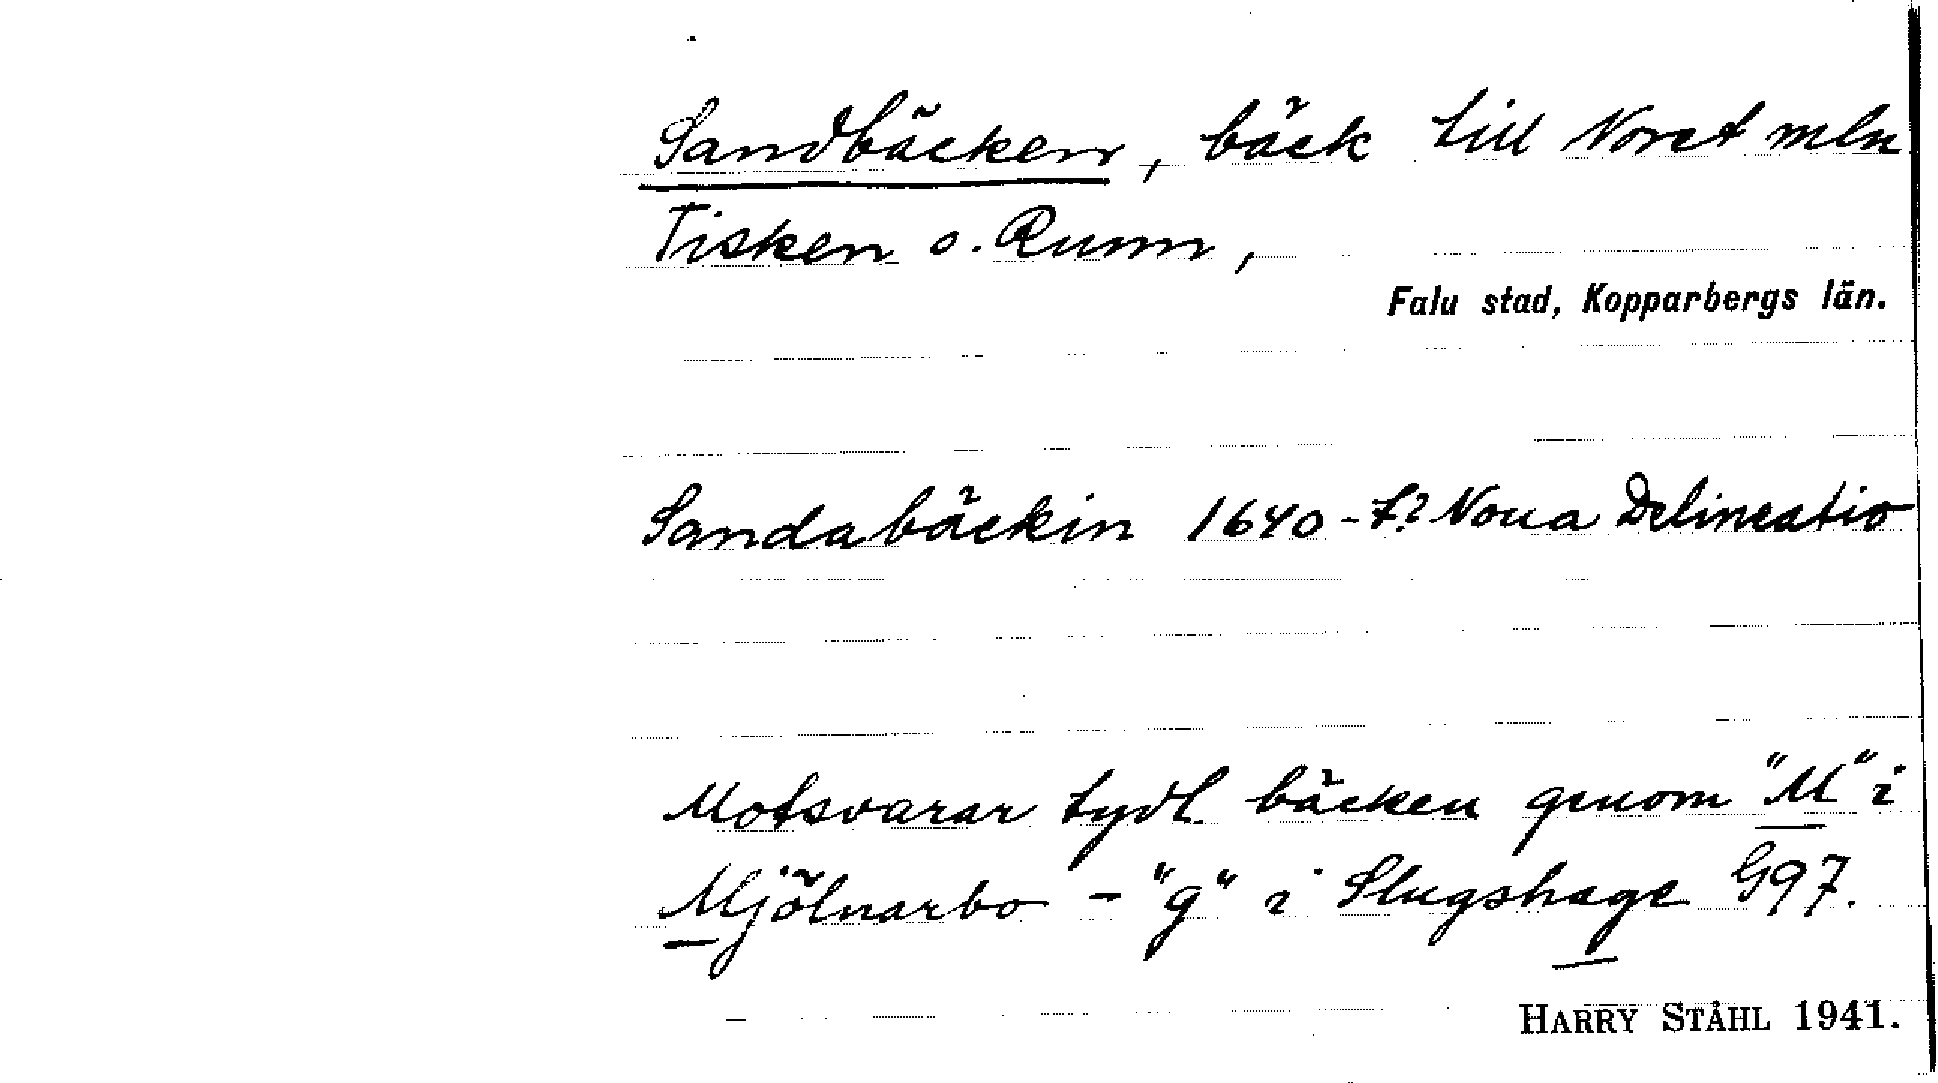 Sandbäcken, bäck till Noret mln
Tisken o. Runn,
Falu stad, Kopparbergs län.
Sandabäckin 1640-t? Noua Delineatio
Motsvarar tydl. bäcken genom "M" i
Mjölnarbo - "g" i Slugshage G97.
HARRY STÅHL 1941.